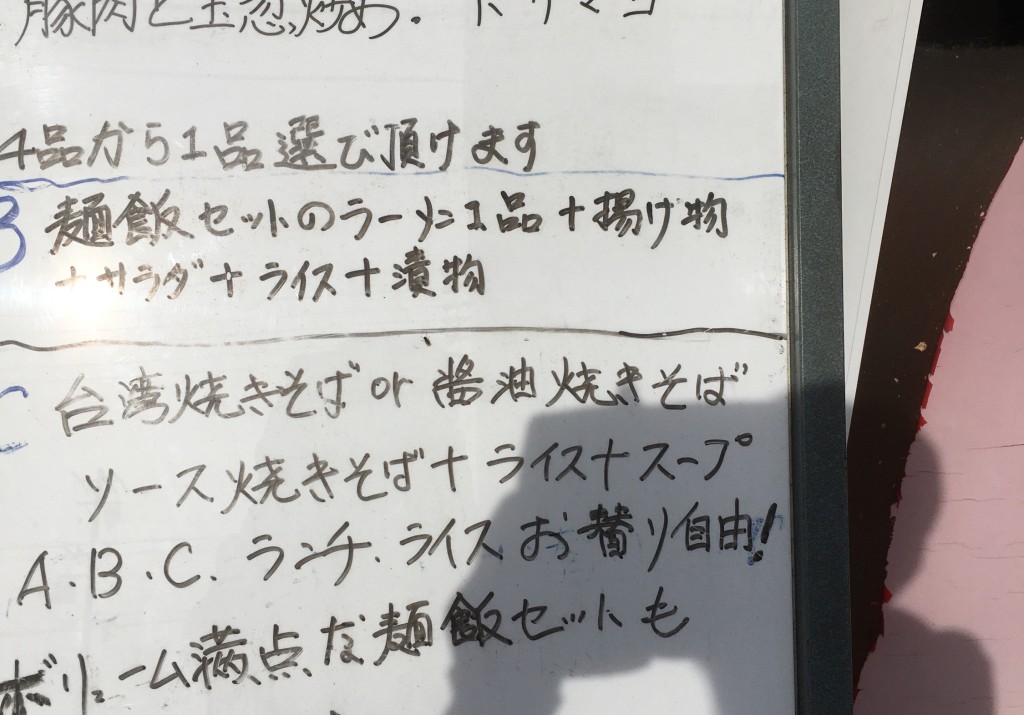 豚肉と玉葱炒め.
4品から1品選び頂けます
B 麺飯セットのラーメン1品+揚げ物
+サラダ+ライス+漬物
C 台湾焼きそばor醤油焼きそば
ソース焼きそば+ライス+スープ
A.B.C.ランチ、ライスお替り自由!
ボリューム満点な麺飯セットも